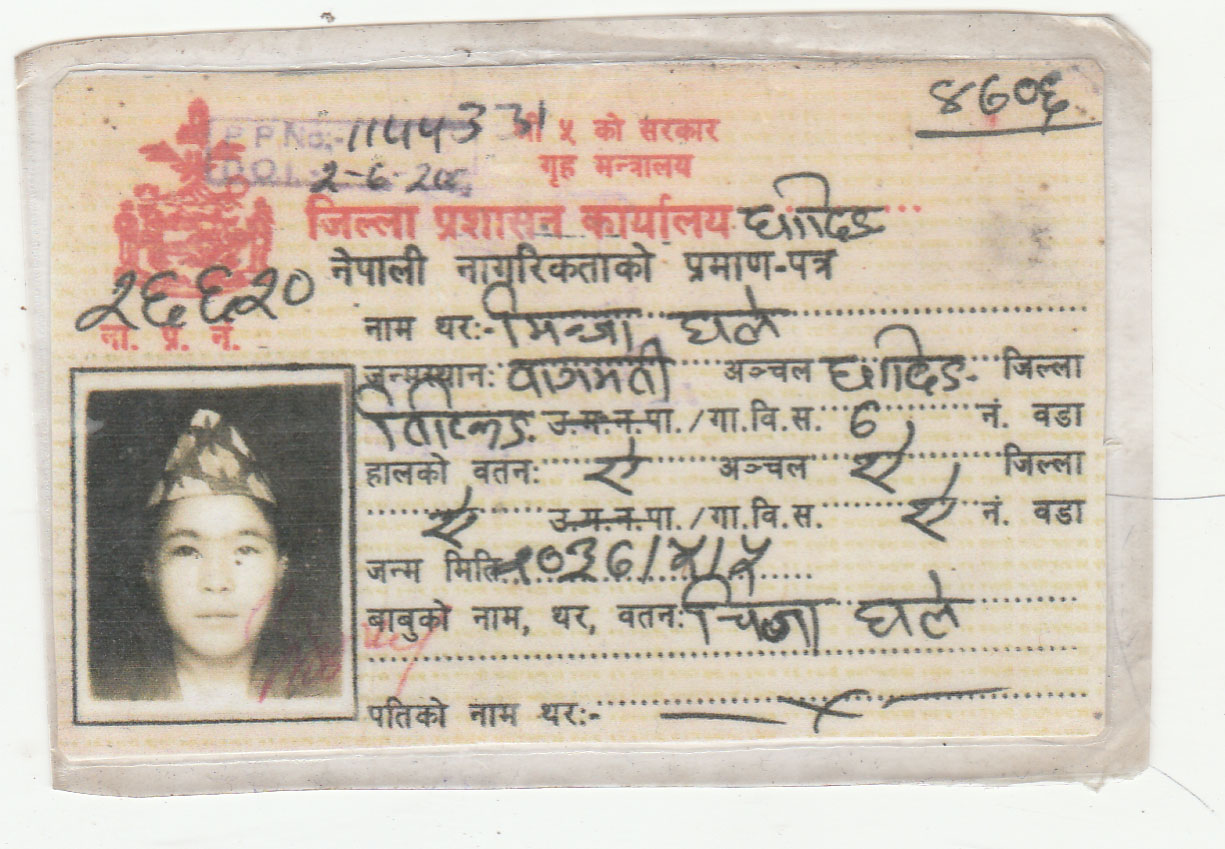 ४७०६
P.P No:- 1155331
D.O.I.:- 2-6-200
श्री ५ को सरकार
गृह मन्त्रालय
जिल्ला प्रशासन कार्यालय धादिङ
नेपाली नागरिकताको प्रमाण-पत्र
२६६२०
ना. प्र. नं.
नाम थर:- मिन्जा घले
जन्मस्थान: वागमती अञ्चल धादिङ जिल्ला
उ.म.न.पा./गा.वि.स. ७ नं. वडा
हालको वतन: ऐ अञ्चल ऐ जिल्ला
ऐ उ.म.न.पा./गा.वि.स. ऐ नं. वडा
जन्म मिति २०३७/५/५
बाबुको नाम, थर, वतन: घले
पतिको नाम थर:- — x —